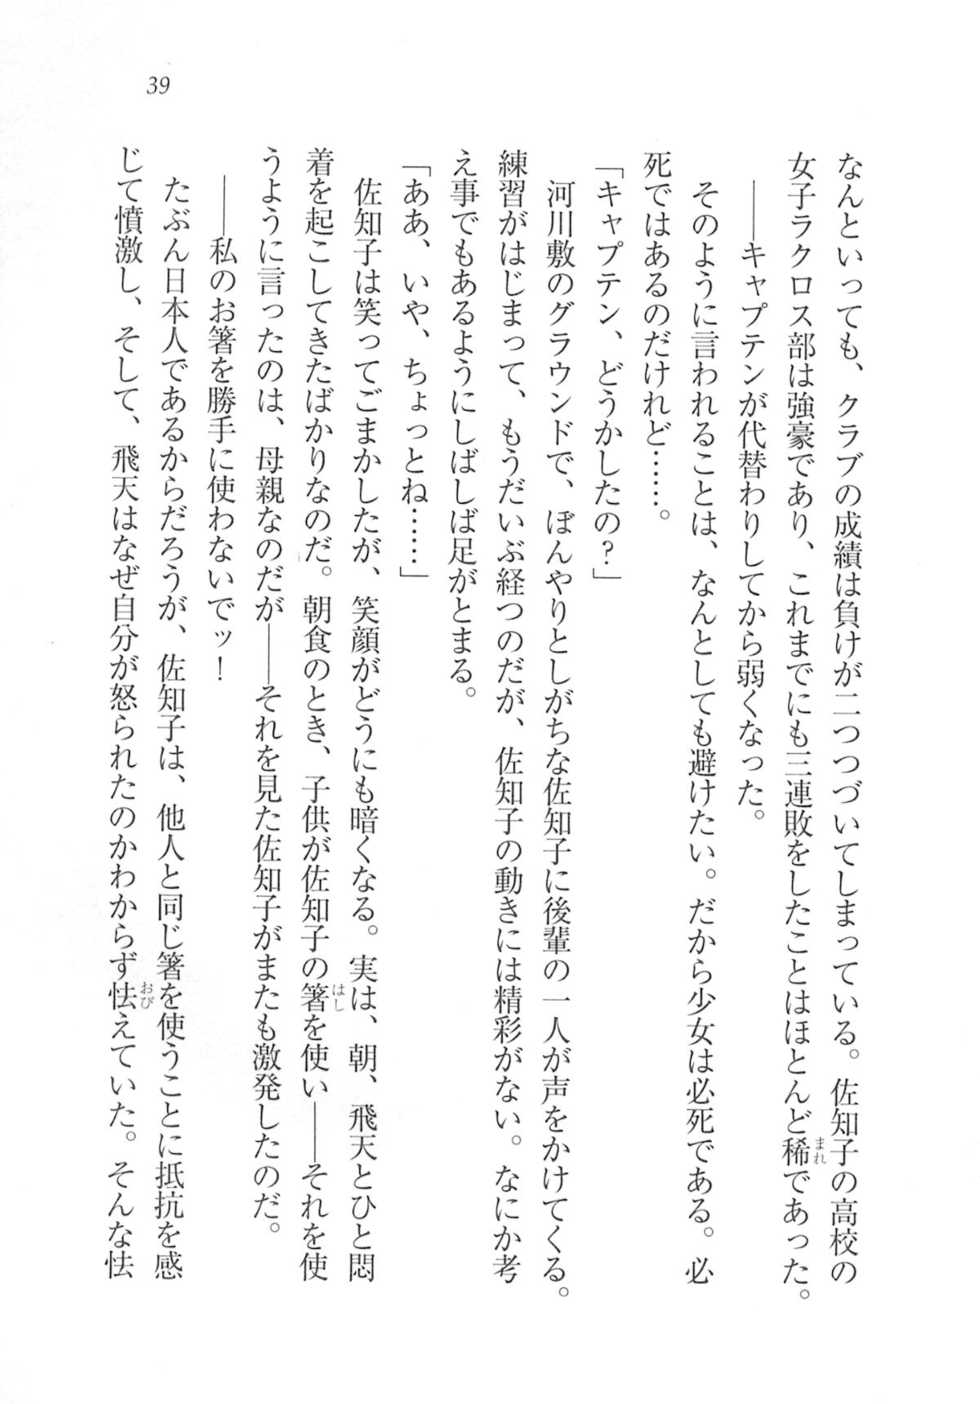 39
なんといっても、クラブの成績は負けが二つつづいてしまっている。佐知子の高校の
女子ラクロス部は強豪であり、これまでにも三連敗をしたことはほとんど稀まれであった。
――キャプテンが代替わりしてから弱くなった。
そのように言われることは、なんとしても避けたい。だから少女は必死である。必
死ではあるのだけれど……。
「キャプテン、どうかしたの?」
河川敷のグラウンドで、ぼんやりとしがちな佐知子に後輩の一人が声をかけてくる。
練習がはじまって、もうだいぶ経つのだが、佐知子の動きには精彩がない。なにか考
え事でもあるようにしばしば足がとまる。
「ああ、いや、ちょっとね……」
佐知子は笑ってごまかしたが、笑顔がどうにも暗くなる。実は、朝、飛天とひと悶
着を起こしてきたばかりなのだ。朝食のとき、子供が佐知子の箸はしを使い――それを使
うように言ったのは、母親なのだが――それを見た佐知子がまたも激発したのだ。
――私のお箸を勝手に使わないでッ!
たぶん日本人であるからだろうが、佐知子は、他人と同じ箸を使うことに抵抗を感
じて憤激し、そして、飛天はなぜ自分が怒られたのかわからず怯おびえていた。そんな怯